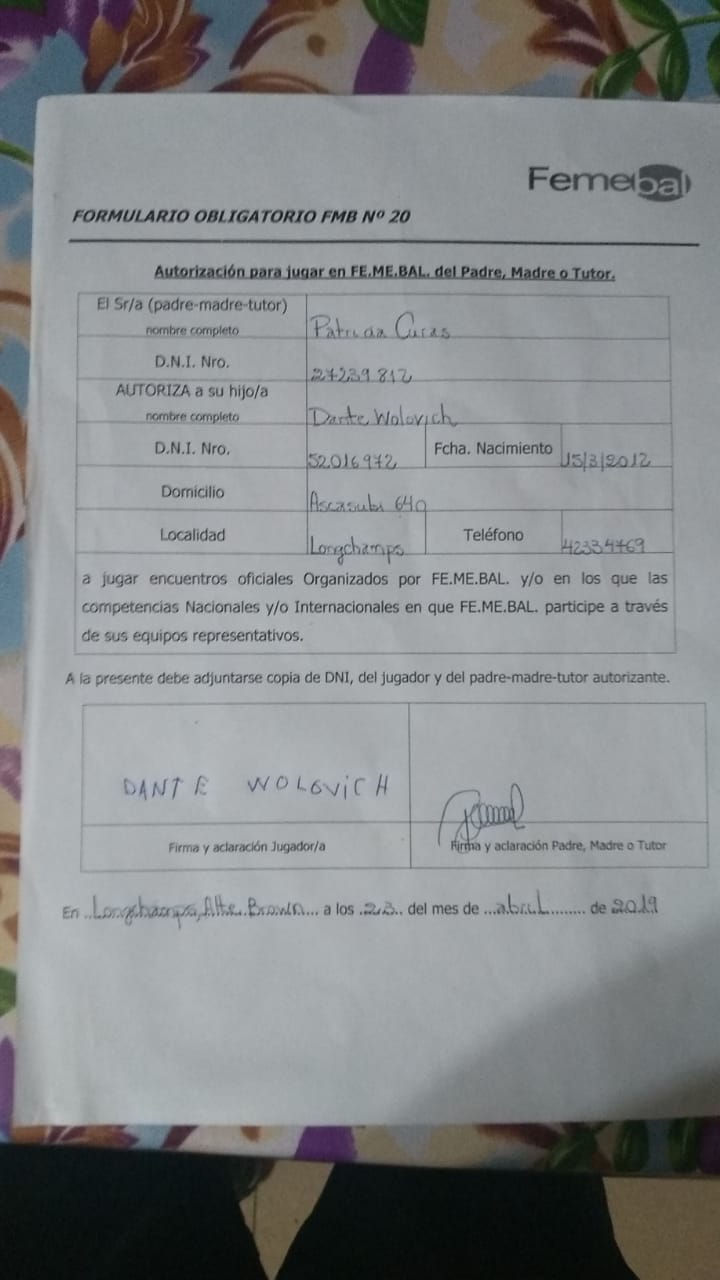 Femebal
FORMULARIO OBLIGATORIO FMB Nº 20
Autorización para jugar en FE.ME.BAL. del Padre, Madre o Tutor.
El Sr/a (padre-madre-tutor)
nombre completo
Patricia
D.N.I. Nro.
27239812
AUTORIZA a su hijo/a
nombre completo
Dante Wolovich
D.N.I. Nro.
52016972
Fcha. Nacimiento
15/3/2012
Domicilio
Ascasubi 640
Localidad
Longchamps
Teléfono
42334769
a jugar encuentros oficiales Organizados por FE.ME.BAL. y/o en los que las
competencias Nacionales y/o Internacionales en que FE.ME.BAL. participe a través
de sus equipos representativos.
A la presente debe adjuntarse copia de DNI, del jugador y del padre-madre-tutor autorizante.
DANTE WOLOViCH
Firma y aclaración Jugador/a
Firma y aclaración Padre, Madre o Tutor
En ..Longchamps, Alte. Brown... a los .23.. del mes de ...abril........ de 2019